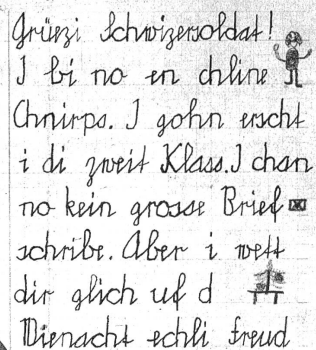 Grüezi Schwizersoldat!
I bi no en chline
Chnirps. I gohn erscht
i di zweit Klass. I chan
no kein grosse Brief
schribe. Aber i wett
dir glich uf d
Wienacht echli freud